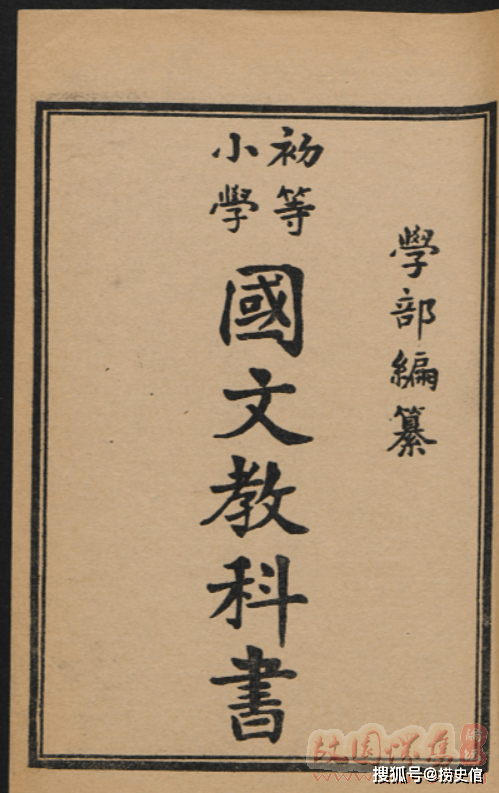 學部編纂
初等
小學
國文教科書
搜狐号@捞史倌